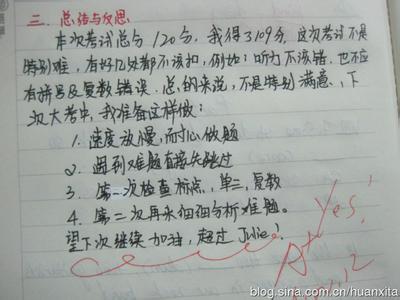 三、总结与反思
本次考试总分120分，我得了109分，这次考试不是
特别难，有好几处都不该扣，例如：听力不该错，也不应
有拼写及复数错误。总的来说，不是特别满意，下
次大考中，我准备这样做：
1. 速度放慢，耐心做题
2. 遇到难题直接先跳过
3. 第二次检查标点，单三，复数
4. 第二次再来细细分析难题。
望下次继续加油，超过 Julie！
A+ Yes!
blog.sina.com.cn/huanxita